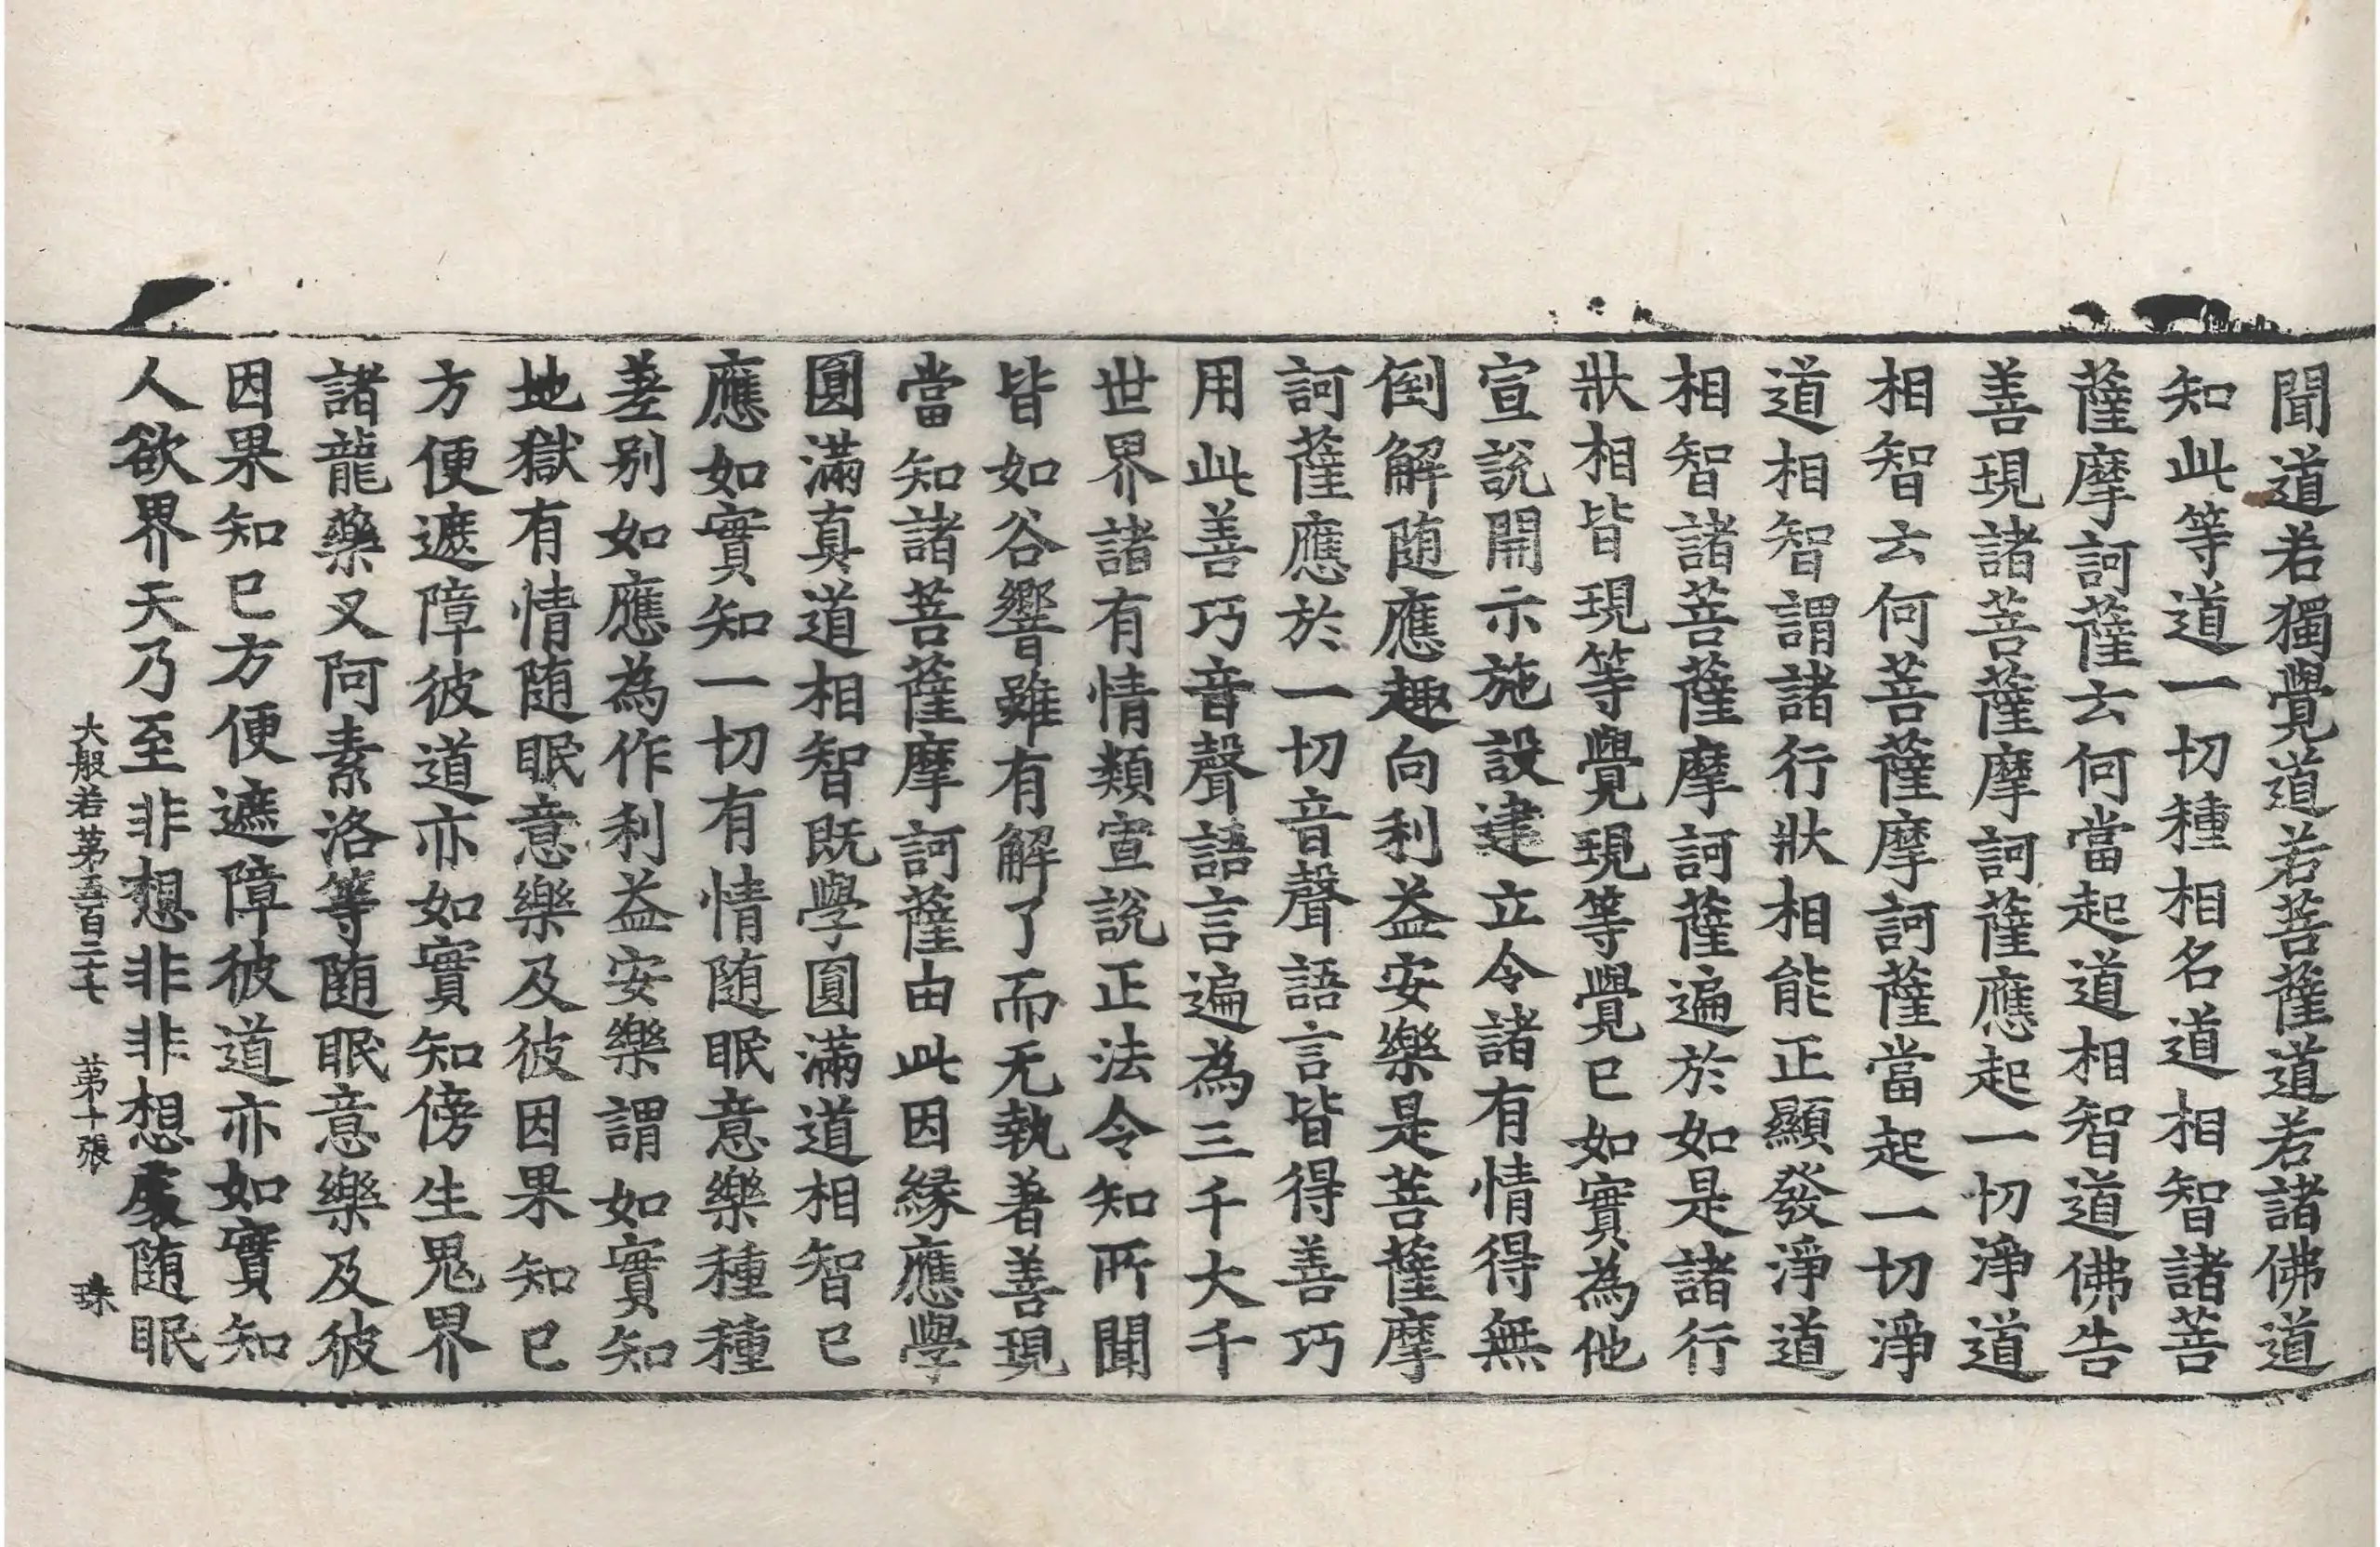 聞道若獨覺道若菩薩道若諸佛道
知此等道一切種相名道相智諸菩
薩摩訶薩云何當起道相智道佛告
善現諸菩薩摩訶薩應起一切淨道
相智云何菩薩摩訶薩當起一切淨
道相智謂諸行狀相能正顯發淨道
相智諸菩薩摩訶薩遍於如是諸行
狀相皆現等覺現等覺已如實為他
宣說開示施設建立令諸有情得無
倒解随應趣向利益安樂是菩薩摩
訶薩應於一切音聲語言皆得善巧
用此善巧音聲語言遍為三千大千
世界諸有情類宣說正法令知所聞
皆如谷響雖有解了而无執著善現
當知諸菩薩摩訶薩由此因緣應學
圓滿真道相智既學圓滿道相智已
應如實知一切有情随眠意樂種種
差别如應為作利益安樂謂如實知
地獄有情随眠意樂及彼因果知已
方便遮障彼道亦如實知傍生鬼界
諸龍藥叉阿素洛等随眠意樂及彼
因果知已方便遮障彼道亦如實知
人欲界天乃至非想非非想處随眠
大般若苐五百二十七　苐十張　珠